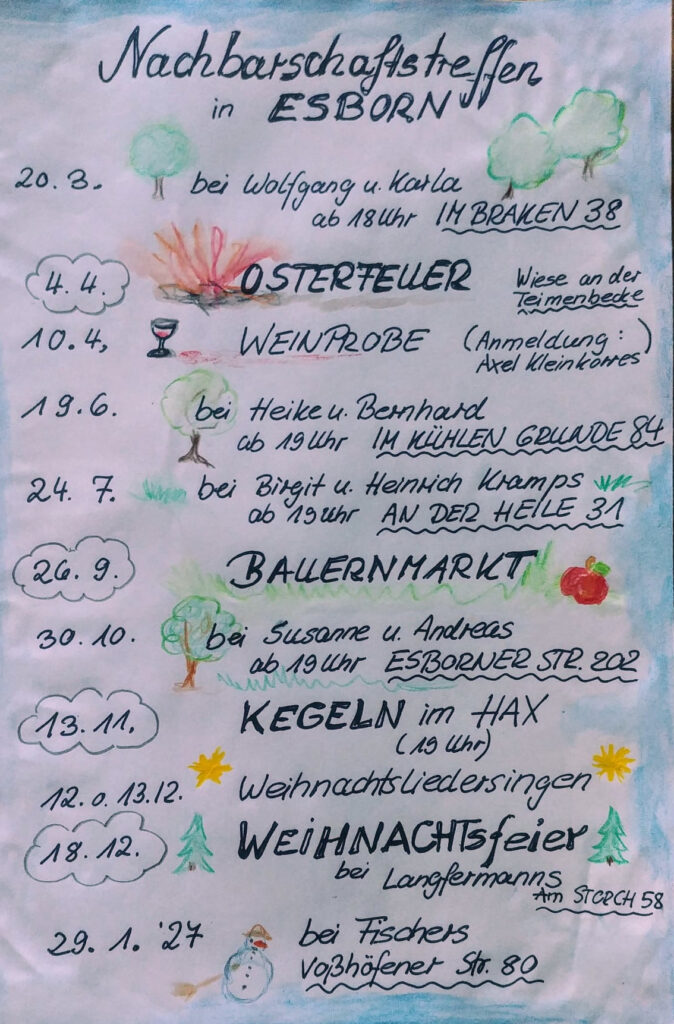 Nachbarschaftstreffen
in ESBORN
20. 3. bei Wolfgang u. Karla
ab 18 Uhr IM BRAKEN 38
4. 4. OSTERFEUER Wiese an der
Teimenbecke
10. 4, WEINPROBE (Anmeldung:
Axel Kleinkorres)
19. 6. bei Heike u. Bernhard
ab 19 Uhr IM KÜHLEN GRUNDE 84
24. 7. bei Birgit u. Heinrich Kramps
ab 19 Uhr AN DER HEILE 31
26. 9. BAUERNMARKT
30. 10. bei Susanne u. Andreas
ab 19 Uhr ESBORNER STR. 202
13. 11. KEGELN im HAX
(19 Uhr)
12. o. 13.12. Weihnachtsliedersingen
18. 12. WEIHNACHTSfeier
bei Langfermanns
Am STORCH 58
29. 1. '27 bei Fischers
Voßhöfener Str. 80